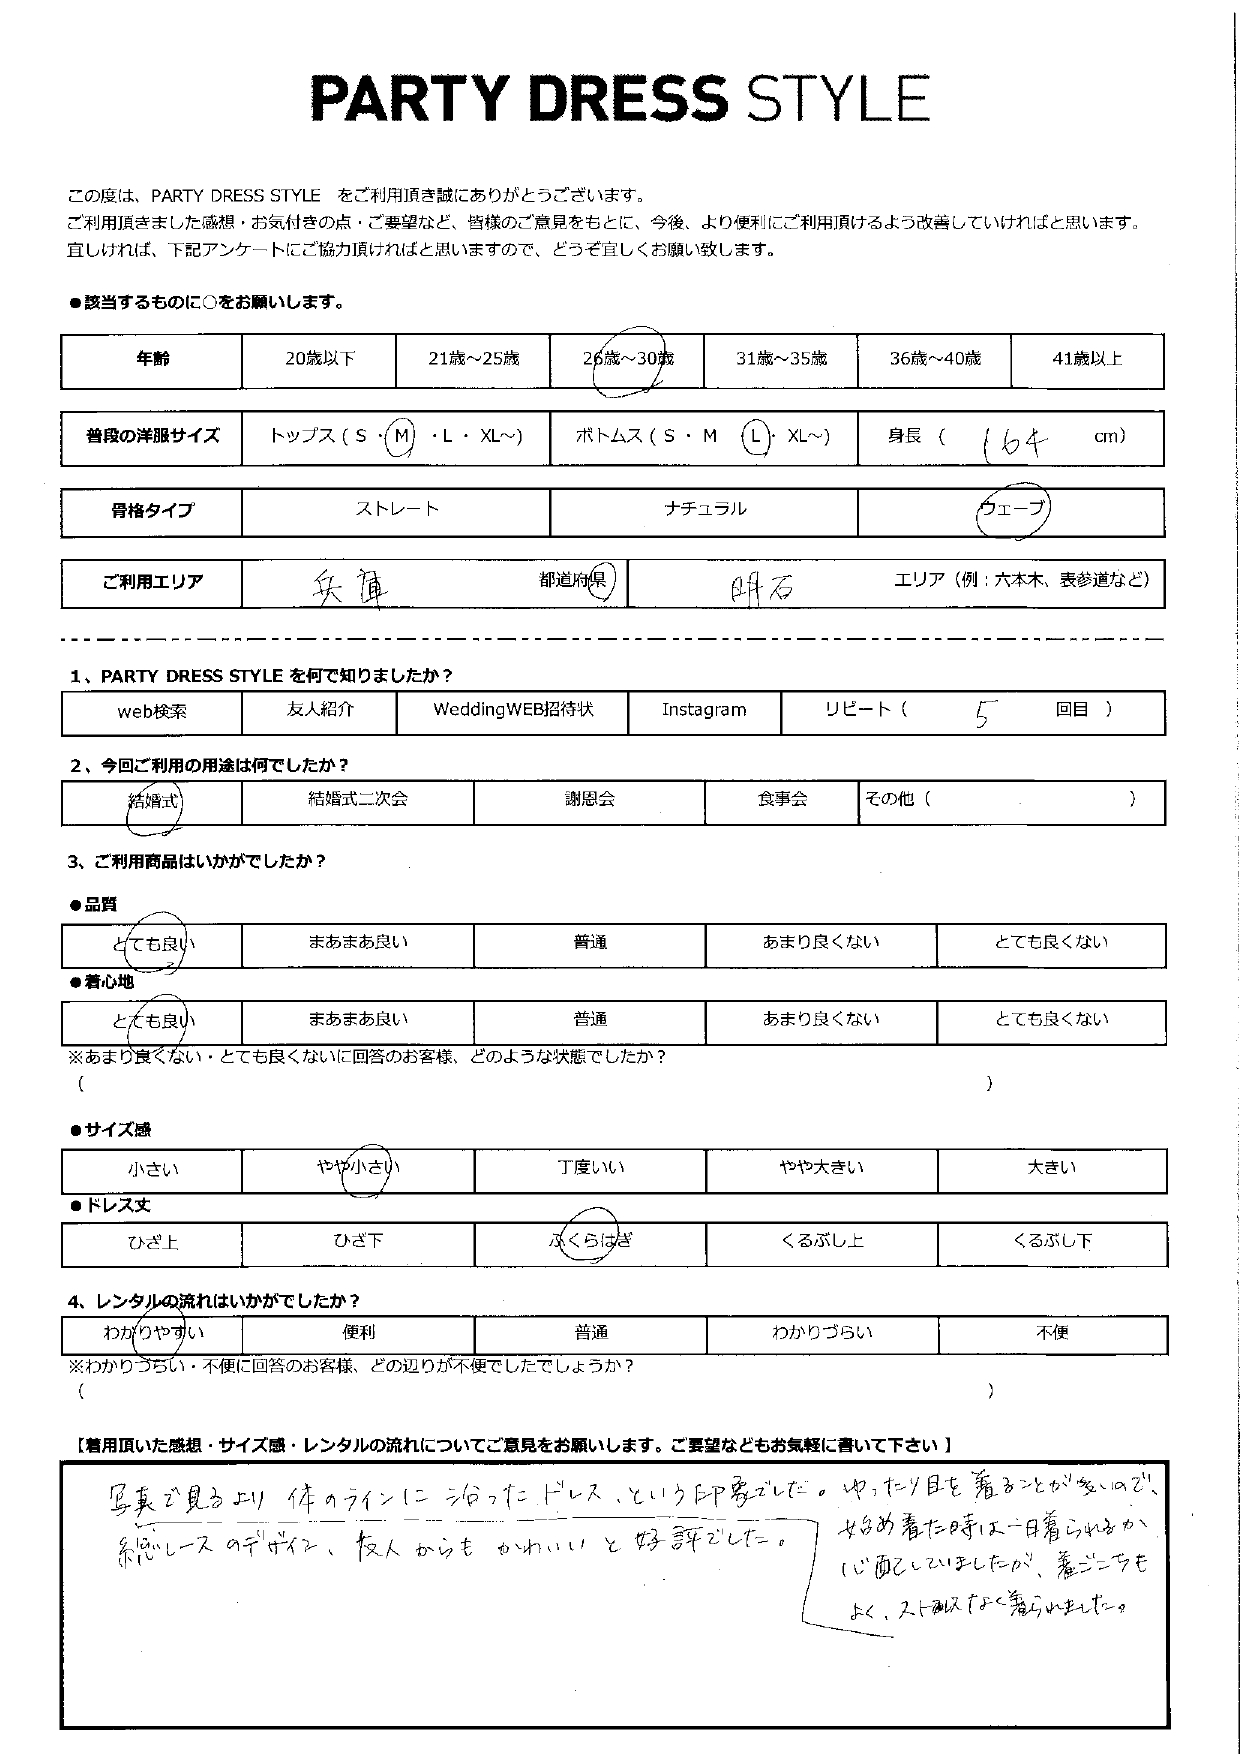 PARTY DRESS STYLE
この度は、PARTY DRESS STYLE をご利用頂き誠にありがとうございます。
ご利用頂きました感想・お気付きの点・ご要望など、皆様のご意見をもとに、今後、より便利にご利用頂けるよう改善していければと思います。
宜しければ、下記アンケートにご協力頂ければと思いますので、どうぞ宜しくお願い致します。
●該当するものに○をお願いします。
年齢 20歳以下 21歳～25歳 26歳～30歳 31歳～35歳 36歳～40歳 41歳以上
普段の洋服サイズ トップス ( S ・ M ・ L ・ XL～) ボトムス ( S ・ M L ・ XL～) 身長 ( 164 cm)
骨格タイプ ストレート ナチュラル ウェーブ
ご利用エリア 兵庫 都道府県 明石 エリア（例：六本木、表参道など）
1、PARTY DRESS STYLE を何で知りましたか？
web検索 友人紹介 WeddingWEB招待状 Instagram リピート ( 5 回目 )
2、今回ご利用の用途は何でしたか？
結婚式 結婚式二次会 謝恩会 食事会 その他 ( )
3、ご利用商品はいかがでしたか？
●品質
とても良い まあまあ良い 普通 あまり良くない とても良くない
●着心地
とても良い まあまあ良い 普通 あまり良くない とても良くない
※あまり良くない・とても良くないに回答のお客様、どのような状態でしたか？
( )
●サイズ感
小さい やや小さい 丁度いい やや大きい 大きい
●ドレス丈
ひざ上 ひざ下 ふくらはぎ くるぶし上 くるぶし下
4、レンタルの流れはいかがでしたか？
わかりやすい 便利 普通 わかりづらい 不便
※わかりづらい・不便に回答のお客様、どの辺りが不便でしたでしょうか？
( )
【着用頂いた感想・サイズ感・レンタルの流れについてご意見をお願いします。ご要望などもお気軽に書いて下さい 】
写真で見るより 体のラインに 沿った ドレス、という印象でした。ゆったり目を着ることが多いので、
始め着た時は一日着られるか
心配していましたが、着ごこちも
よく、ストレスなく着られました。
総レースのデザイン、友人からもかわいいと好評でした。